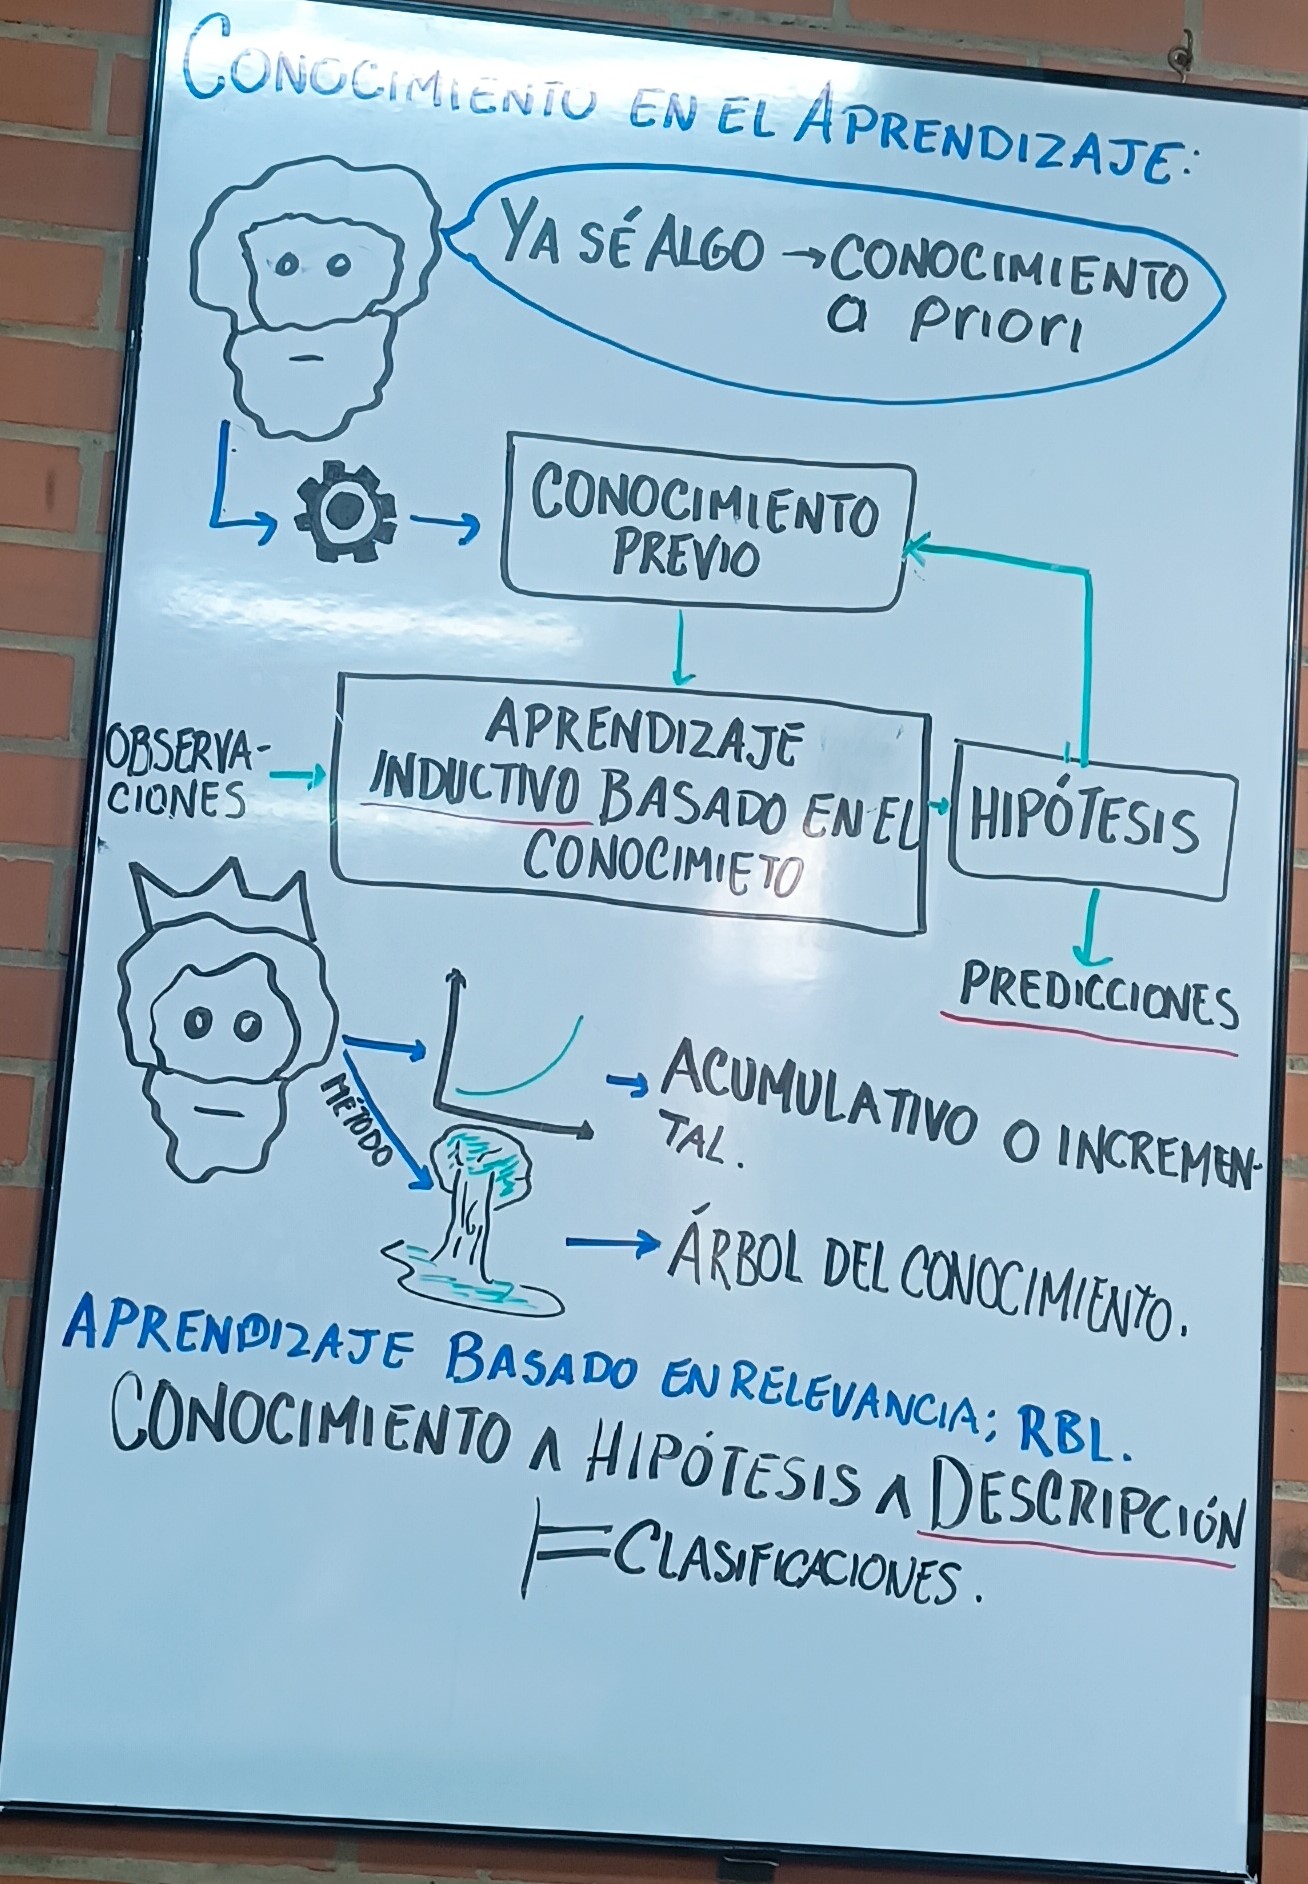 CONOCIMIENTO EN EL APRENDIZAJE:
YA SÉ ALGO → CONOCIMIENTO
a PRIORI
CONOCIMIENTO
PREVIO
OBSERVA-
CIONES
APRENDIZAJE
INDUCTIVO BASADO EN EL
CONOCIMIETO
HIPÓTESIS
PREDICCIONES
MÉTODO
ACUMULATIVO O INCREMEN-
TAL.
ÁRBOL DEL CONOCIMIENTO.
APRENDIZAJE BASADO EN RELEVANCIA; RBL.
CONOCIMIENTO ∧ HIPÓTESIS ∧ DESCRIPCIÓN
⊨ CLASIFICACIONES.